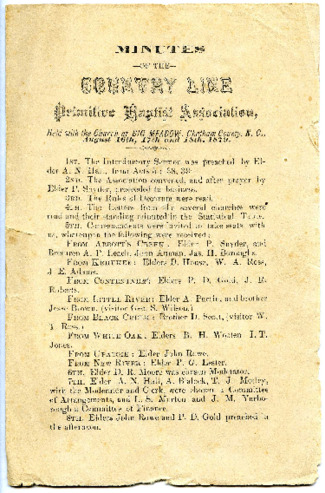 MINUTES
—OF THE—
COUNTRY LINE
Primitive Baptist Association,
Held with the Church at BIG MEADOW, Chatham County, N. C.,
August 16th, 17th and 18th, 1879.
1ST. The Introductory Sermon was preached by El-
der A. N. Hall, from Acts 38, 39
2ND. The Association convened, and after prayer by
Elder P. Snyder, proceeded to business.
3RD. The Rules of Decorum were read.
4TH. The Letters from the several churches were
read and their standing printed in the Statistical Table.
5TH. Correspondents were invited to take seats with
us, whereupon the following were received:
FROM ABBOTT'S CREEK, Elder P. Snyder, and
Brethren A. P. Leach, John Jas. H.
FROM KEHUKEE: Elders D. House, W. A. Ross,
J. E. Adams.
FROM CONTENTNEA: Elders P. D. Gold, J. R.
Roberts.
FROM LITTLE RIVER: Elder A. and brother
Jesse Brown, (visitor Geo. S. Wilson.)
FROM BLACK CREEK: Brother D. Scott, (visitor W.
T. Ross.)
FROM WHITE OAK, Elders B. H. Wooten I. T.
Jones.
FROM Elder John Rowe.
FROM NEW RIVER: Elder P. G. Lester.
6TH. Elder D. R. Moore was chosen Moderator.
7TH. Elder A. N. Hall, A. Blalock, T. J. Motley,
with the Moderator and Clerk, were chosen a Committee
of Arrangements, and L. S. Morton and J. M. Yarbo-
rough a Committee of Finance.
8TH. Elders John Rowe and P. D. Gold preached in
the afternoon.